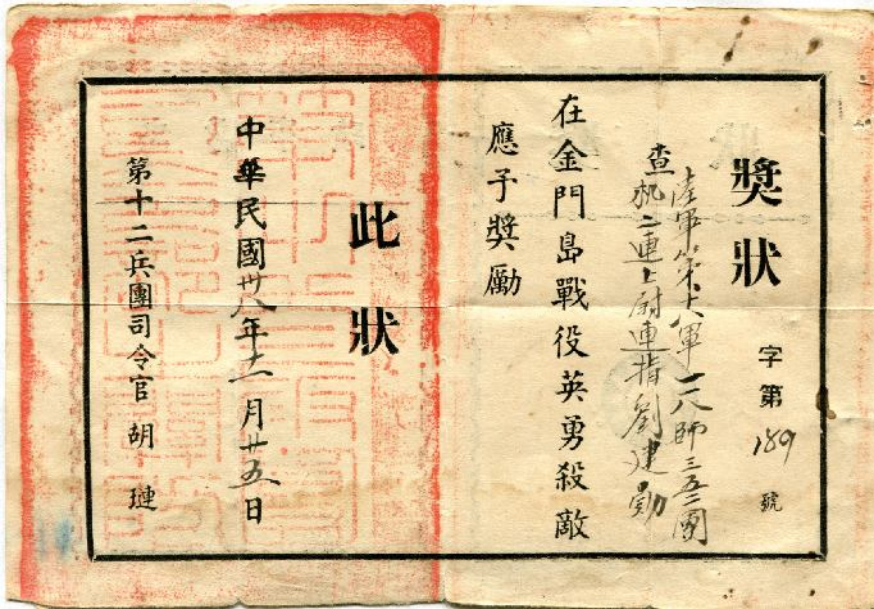 獎狀
字第189號
陸軍第十八軍一一八師三五二團
查机二連上尉連指劉建勛
在金門島戰役英勇殺敵
應予獎勵
此狀
中華民國卅八年十一月廿五日
第十二兵團司令官胡璉